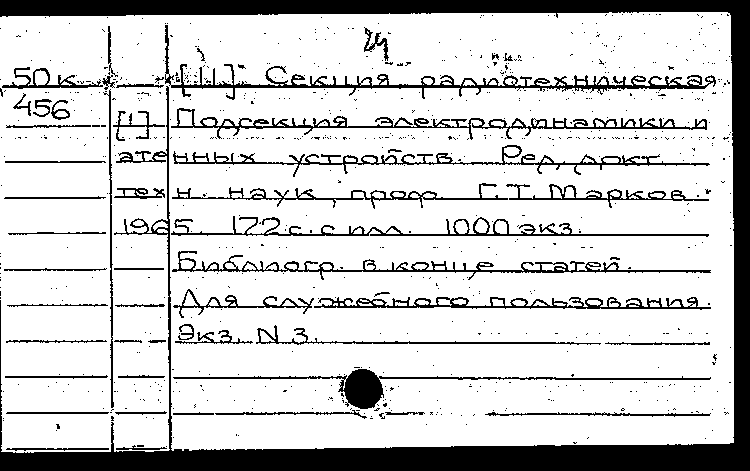 24
50к [11] Секция радиотехническая
456
[1] Подсекция электродинамики и
атенных устройств. Ред. докт
техн. наук, проф. Г.Т. Марков.
1965. 172 с. с илл. 1000 экз.
Библиогр. в конце статей.
Для служебного пользования.
Экз. N 3.